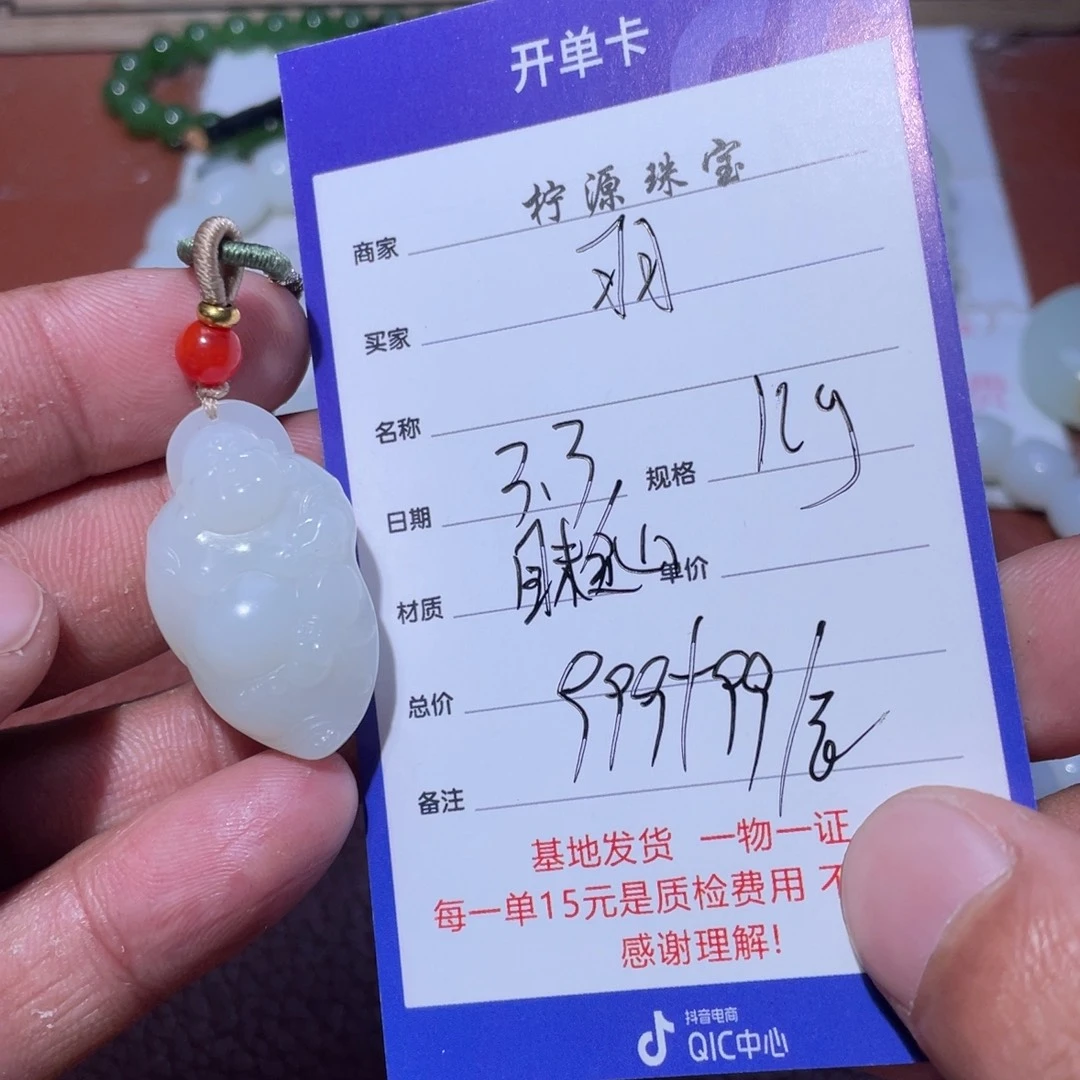 开单卡
商家 柠源珠宝
买家 羽
名称
日期 3.3 规格 12g
材质 单价
总价 999+99/
备注
基地发货 一物一证
每一单15元是质检费用 不
感谢理解!
抖音电商
QIC中心